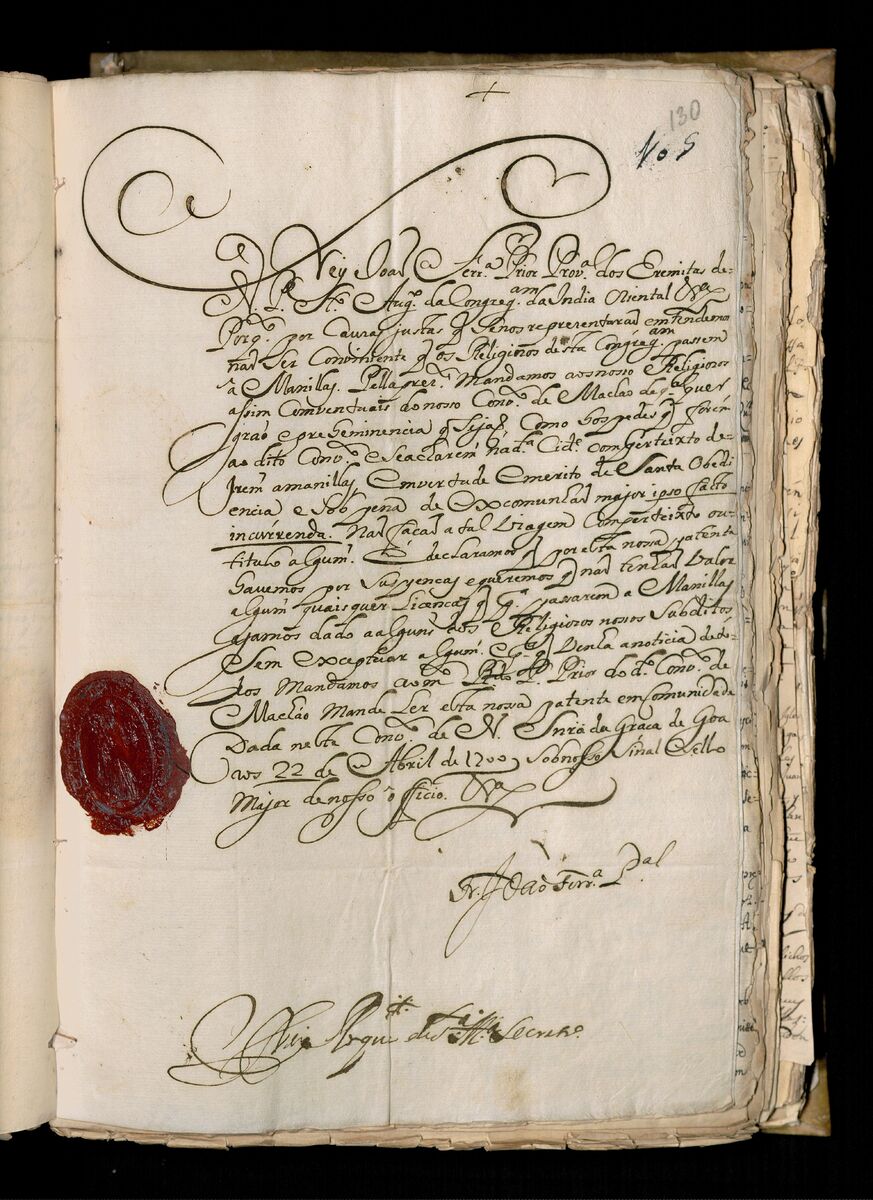 +
130
No 9
Frey Joaõ Ferr.ª Prior Prov.ª dos Eremitas de=
N. P. S.to Aug.º da Congreg.am da India Oriental &.ª
Porq. por causas justas q Senos reprezentaraõ entendemos
naõ Ser Conviniente q os Religiozos desta Congreg.am passem
a Manillas. Pella prez.te Mandamos aos nossos Religiozos
assim Conventuais do nosso Conv.to de Machao de qualquer
grao e preheminencia q Sejaõ, Como hospedes q forem
ao dito Conv.to e Seacharem na d.ª Cid.e comperteixto de=
Irem amanillas, Emvertude e merito de Santa Obedi
encia e Sob pena de excomunhaõ major ipso facto
incurrenda. Naõ façaõ a tal Viagem Comperteixto ou=
titulo algum. E declaramos q por esta nossa patente
havemos por Suspenças e queremos q naõ tenhaõ Valor
algum quaisquer Licenças q p.ª passarem a Manillas
ajamos dado a alguns dos Religiozos nossos Subditos
Sem exceptuar algum. E p.ª q Venha anoticia de to=
dos Mandamos ao m. P. Prior do d.º Conv.to de
Machao Mande Ler esta nossa patente em Comunidade
Dada neste Conv.to de N. Snrã da Graça de Goa
aos 22 de Abril de 1700, Sob nosso Sinal e Sello
Major de nosso officio. &.ª
Fr. Joaõ Ferr.ª P.al
Secretr.º